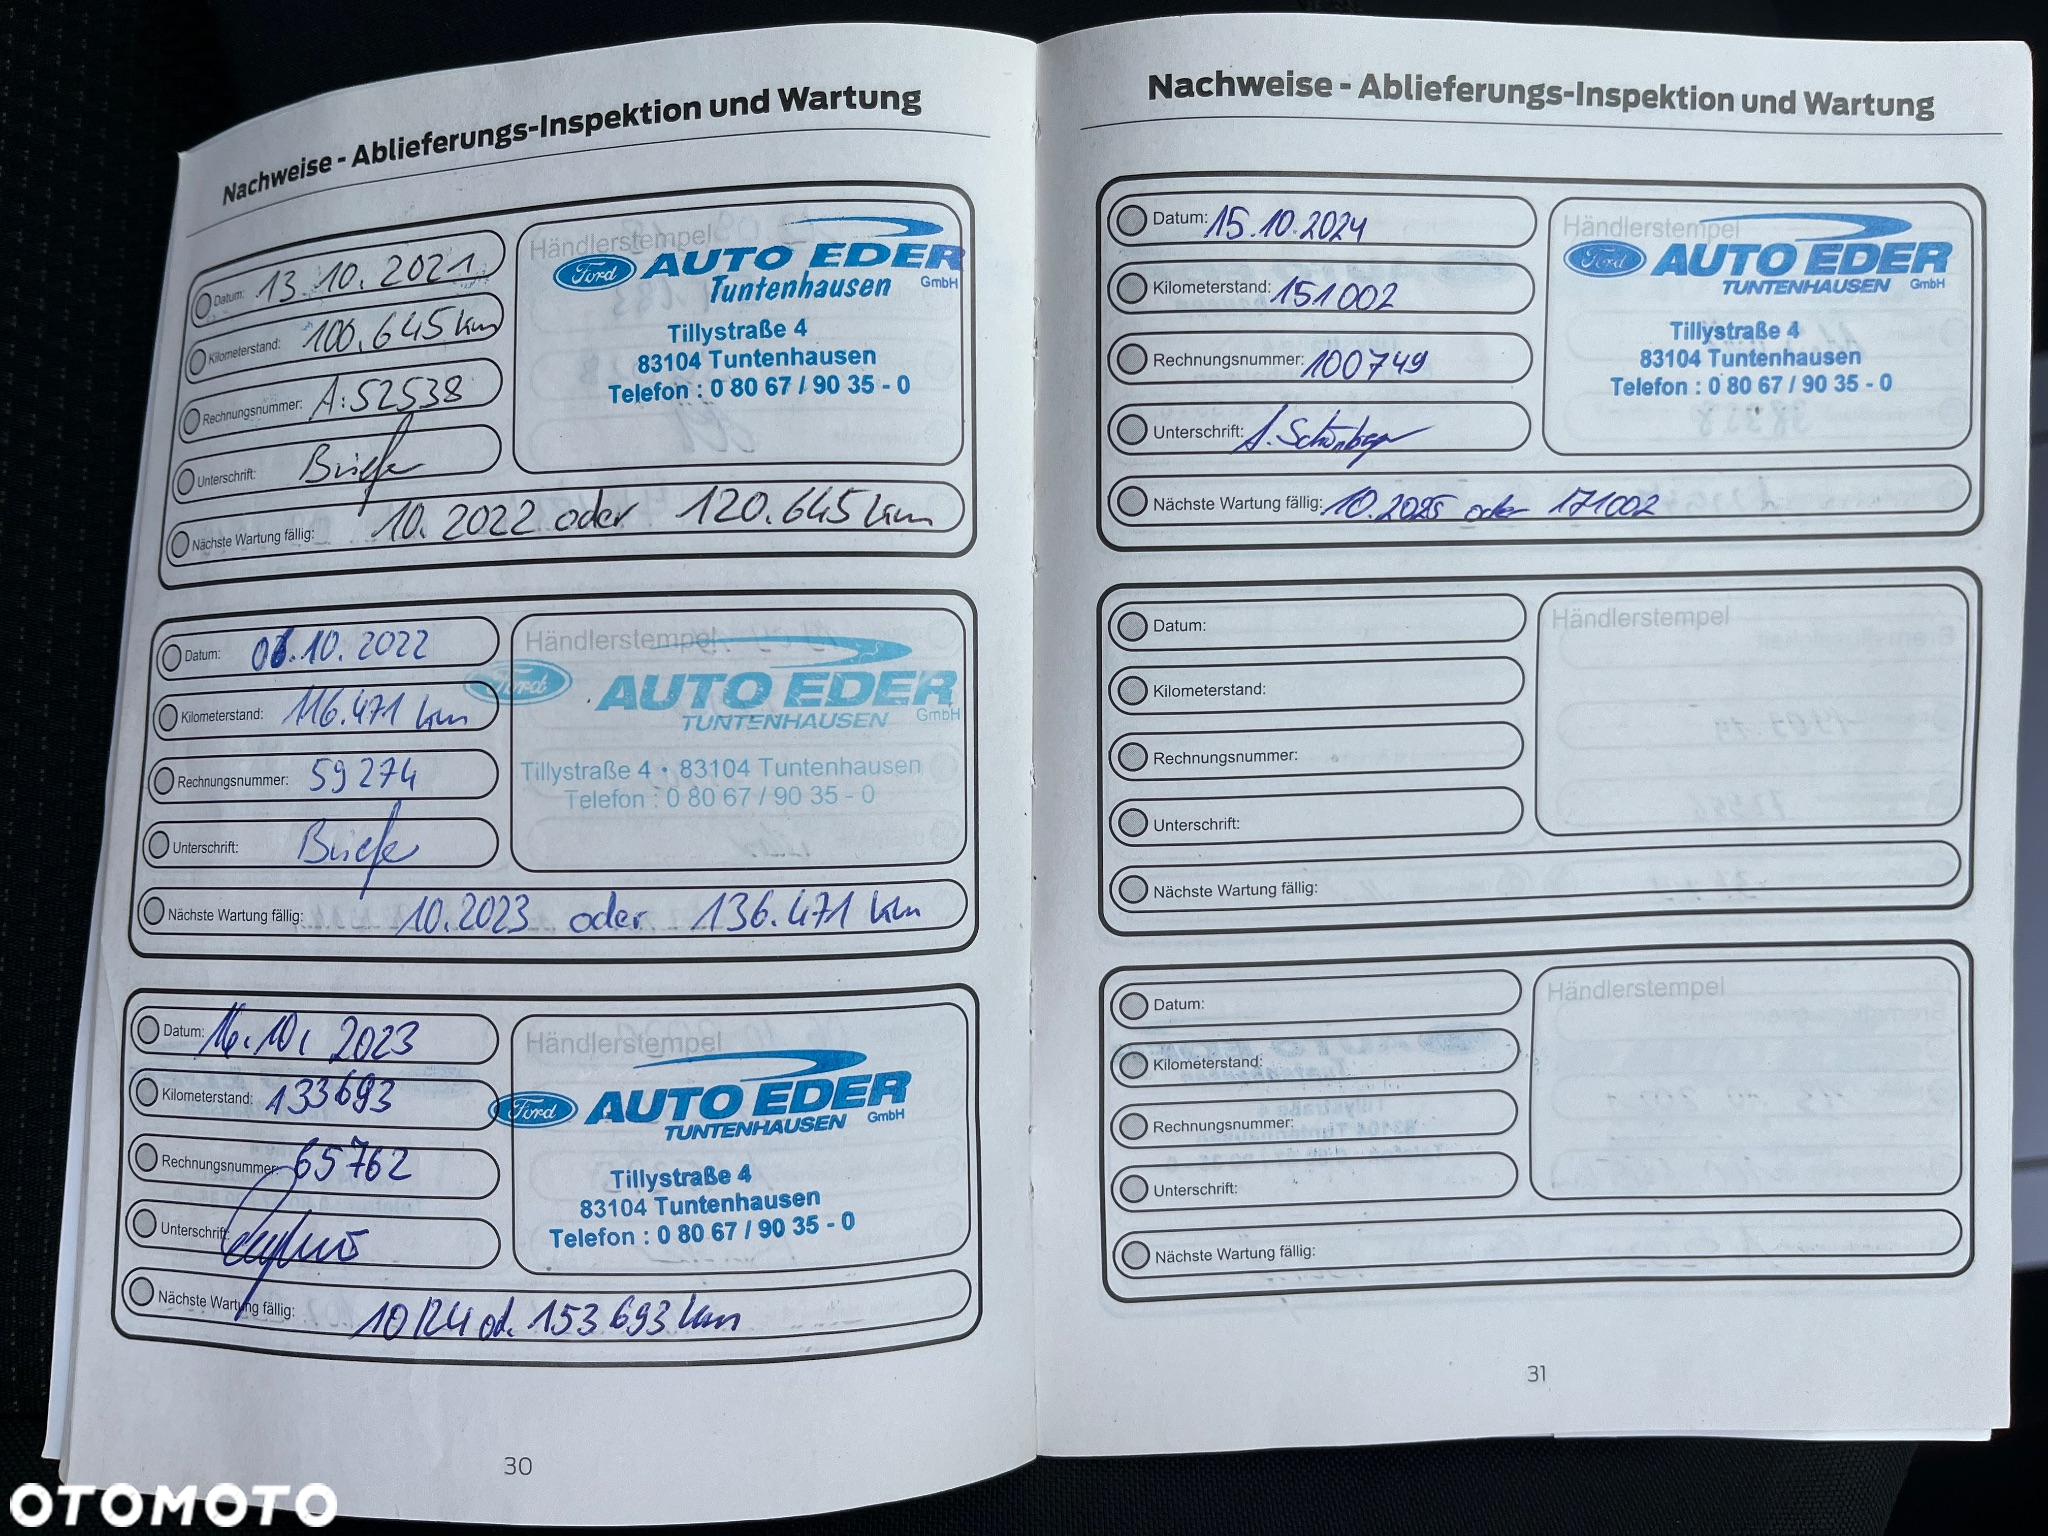 Nachweise - Ablieferungs-Inspektion und Wartung
Datum: 13.10.2021
Kilometerstand: 100.645 km
Rechnungsnummer: A:52538
Unterschrift:
Nächste Wartung fällig: 10.2022 oder 120.645 km
Händlerstempel
Ford AUTO EDER GmbH
Tuntenhausen
Tillystraße 4
83104 Tuntenhausen
Telefon : 0 80 67 / 90 35 - 0
Datum: .10.2022
Kilometerstand: 116.471 km
Rechnungsnummer: 59274
Unterschrift:
Nächste Wartung fällig: 10.2023 oder 136.471 km
Händlerstempel
Ford AUTO EDER GmbH
TUNTENHAUSEN
Tillystraße 4 • 83104 Tuntenhausen
Telefon : 0 80 67 / 90 35 - 0
Datum: 16.10. 2023
Kilometerstand: 133693
Rechnungsnummer: 65762
Unterschrift:
Nächste Wartung fällig: 10/24 od. 153 693 km
Händlerstempel
Ford AUTO EDER GmbH
TUNTENHAUSEN
Tillystraße 4
83104 Tuntenhausen
Telefon : 0 80 67 / 90 35 - 0
30
Nachweise - Ablieferungs-Inspektion und Wartung
Datum: 15.10.2024
Kilometerstand: 151002
Rechnungsnummer: 100749
Unterschrift:
Nächste Wartung fällig: 10.2025 oder 171002
Händlerstempel
Ford AUTO EDER GmbH
TUNTENHAUSEN
Tillystraße 4
83104 Tuntenhausen
Telefon : 0 80 67 / 90 35 - 0
Datum:
Kilometerstand:
Rechnungsnummer:
Unterschrift:
Nächste Wartung fällig:
Händlerstempel
Datum:
Kilometerstand:
Rechnungsnummer:
Unterschrift:
Nächste Wartung fällig:
Händlerstempel
31
OTOMOTO